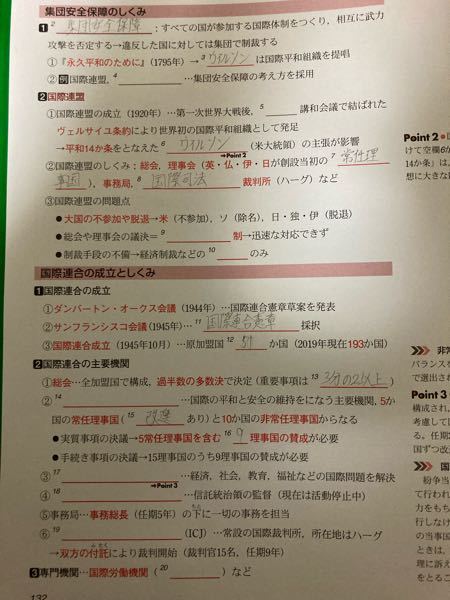 集団安全保障のしくみ
1 2 集団安全保障：すべての国が参加する国際体制をつくり，相互に武力
攻撃を否定する→違反した国に対しては集団で制裁する
①『永久平和のために』（1795年）→ 3 ウィルソン は国際平和組織を提唱
②例国際連盟， 4 …集団安全保障の考え方を採用
2 国際連盟
①国際連盟の成立（1920年）…第一次世界大戦後， 5 講和会議で結ばれた
ヴェルサイユ条約により世界初の国際平和組織として発足
→平和14か条をとなえた 6 ウィルソン （米大統領）の主張が影響
➡Point 2
②国際連盟のしくみ：総会，理事会（英・仏・伊・日が創設当初の 7 常任理
事国），事務局， 8 国際司法 裁判所（ハーグ）など
③国際連盟の問題点
●大国の不参加や脱退→米（不参加），ソ（除名），日・独・伊（脱退）
●総会や理事会の議決＝ 9 制→迅速な対応できず
●制裁手段の不備→経済制裁などの 10 のみ
国際連合の成立としくみ
1 国際連合の成立
①ダンバートン・オークス会議（1944年）…国際連合憲章草案を発表
②サンフランシスコ会議（1945年）… 11 国際連合憲章 採択
③国際連合成立（1945年10月）…原加盟国 12 51 か国（2019年現在193か国）
2 国際連合の主要機関
①総会…全加盟国で構成，過半数の多数決で決定（重要事項は 13 3分の2以上）
② 14 …国際の平和と安全の維持をになう主要機関，5か
国の常任理事国（ 15 改選 あり）と10か国の非常任理事国からなる
●実質事項の決議→5常任理事国を含む 16 9 理事国の賛成が必要
●手続き事項の決議→15理事国のうち9理事国の賛成が必要
③ 17 …経済，社会，教育，福祉などの国際問題を解決
➡Point 3
④ 18 …信託統治領の監督（現在は活動停止中）
⑤事務局…事務総長（任期5年）の下に一切の事務を担当
⑥ 19 （ICJ）…常設の国際裁判所，所在地はハーグ
→双方の付託により裁判開始（裁判官15名，任期9年）
3 専門機関…国際労働機関（ 20 ）など
132
Point 2
けて空欄6か
14か条」は，
想に大きな
非常
バランスを
で選出され
Point 3
構成され，